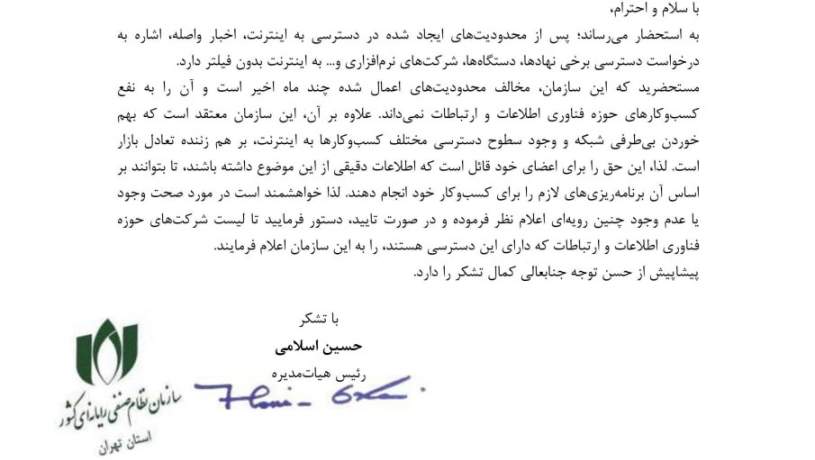 با سلام و احترام،
به استحضار می‌رساند؛ پس از محدودیت‌های ایجاد شده در دسترسی به اینترنت، اخبار واصله، اشاره به
درخواست دسترسی برخی نهادها، دستگاه‌ها، شرکت‌های نرم‌افزاری و... به اینترنت بدون فیلتر دارد.
مستحضرید که این سازمان، مخالف محدودیت‌های اعمال شده چند ماه اخیر است و آن را به نفع
کسب‌وکارهای حوزه فناوری اطلاعات و ارتباطات نمی‌داند. علاوه بر آن، این سازمان معتقد است که بهم
خوردن بی‌طرفی شبکه و وجود سطوح دسترسی مختلف کسب‌وکارها به اینترنت، بر هم زننده تعادل بازار
است. لذا، این حق را برای اعضای خود قائل است که اطلاعات دقیقی از این موضوع داشته باشند، تا بتوانند بر
اساس آن برنامه‌ریزی‌های لازم را برای کسب‌وکار خود انجام دهند. لذا خواهشمند است در مورد صحت وجود
یا عدم وجود چنین رویه‌ای اعلام نظر فرموده و در صورت تایید، دستور فرمایید تا لیست شرکت‌های حوزه
فناوری اطلاعات و ارتباطات که دارای این دسترسی هستند، را به این سازمان اعلام فرمایند.
پیشاپیش از حسن توجه جنابعالی کمال تشکر را دارد.
با تشکر
حسین اسلامی
رئیس هیات‌مدیره
سازمان نظام صنفی رایانه‌ای کشور
استان تهران